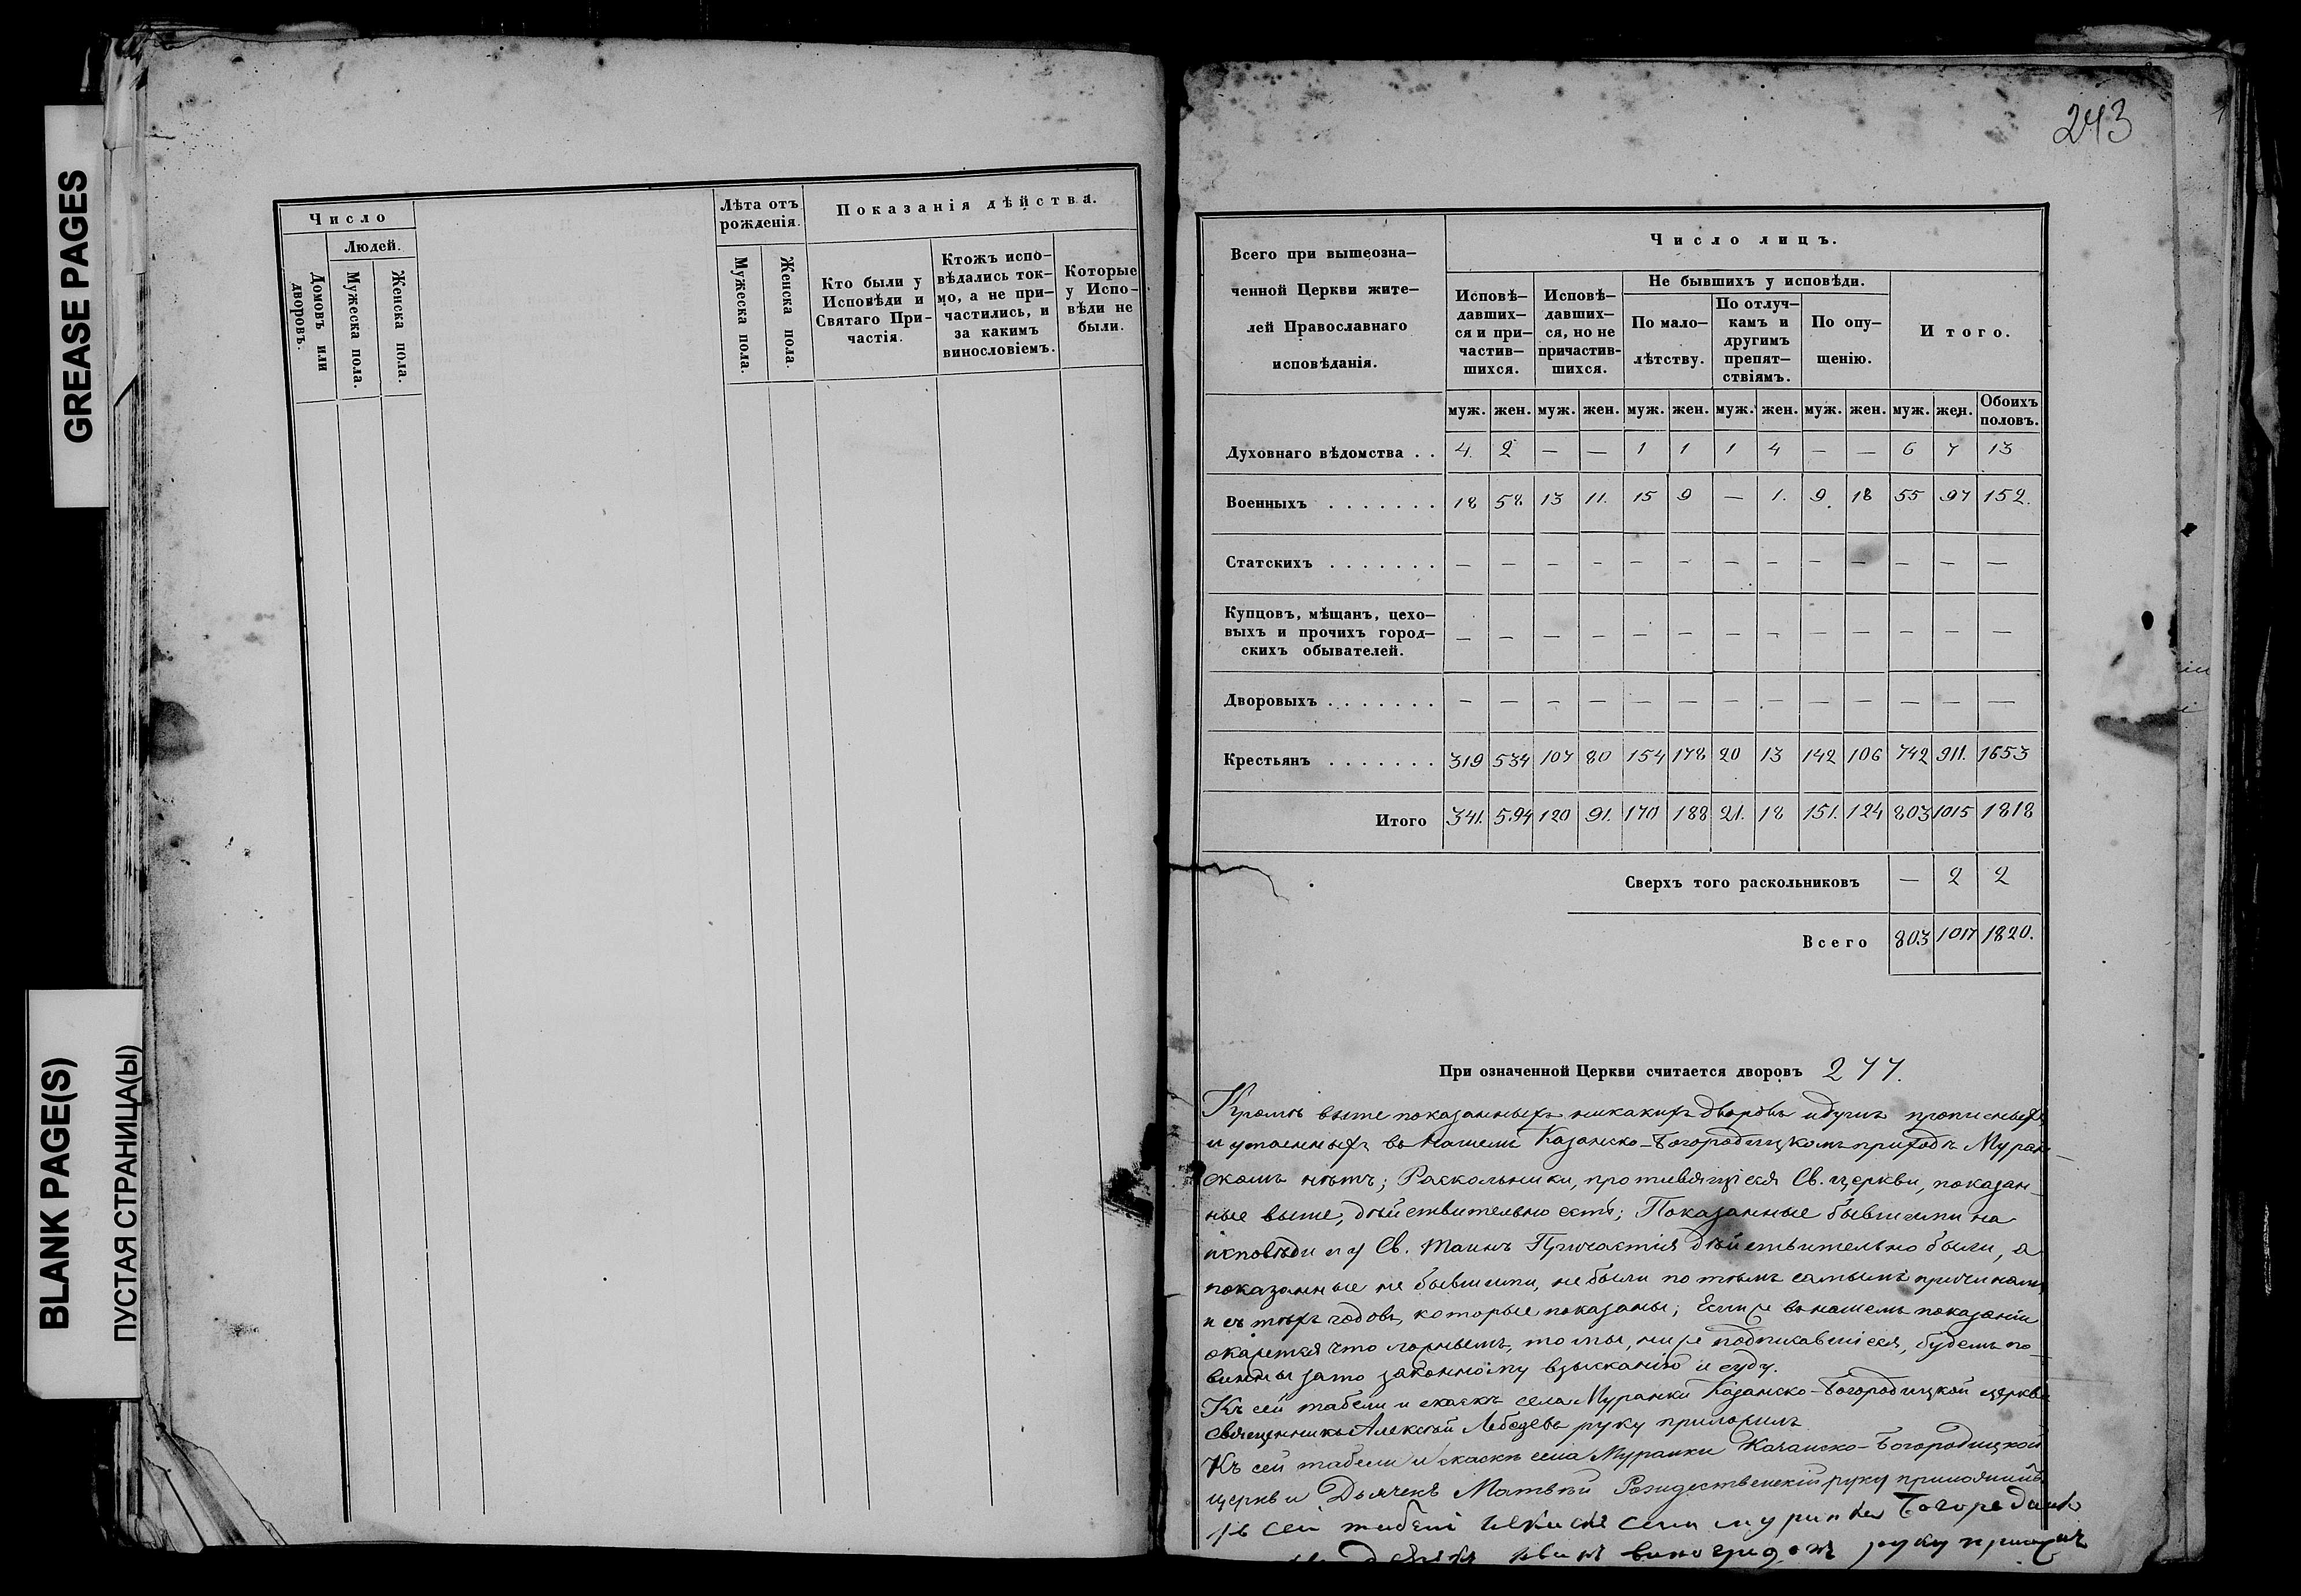 GREASE PAGES
BLANK PAGE(S)
ПУСТАЯ СТРАНИЦА(Ы)
Число
Людей.
Домовъ или дворовъ.
Мужеска пола.
Женска пола.
Лѣта отъ
рожденія.
Мужеска пола.
Женска пола.
Показанія дѣйства.
Кто были у
Исповѣди и
Святаго При-
частія.
Ктожъ испо-
вѣдались ток-
мо, а не при-
частились, и
за какимъ
винословіемъ.
Которые
у Испо-
вѣди не
были.
243
Всего при вышеозна-
ченной Церкви жите-
лей Православнаго
исповѣданія.
Число лицъ.
Исповѣ-
давших-
ся и при-
частив-
шихся.
Исповѣ-
давших-
ся, но не
причастив-
шихся.
Не бывшихъ у исповѣди.
По мало-
лѣтству.
По отлуч-
камъ и
другимъ
препят-
ствіямъ.
По опу-
щенію.
Итого.
муж. жен. муж. жен. муж. жен. муж. жен. муж. жен. муж. жен. Обоихъ половъ.
Духовнаго вѣдомства . . 4. 2 — — 1 1 1 4 — — 6 7 13
Военныхъ . . . . . . . 18 58 13 11. 15 9 — 1. 9. 18 55 97 152.
Статскихъ . . . . . . . — — — — — — — — — — — — —
Купцовъ, мѣщанъ, цехо-
выхъ и прочихъ город-
скихъ обывателей. — — — — — — — — — — — — —
Дворовыхъ . . . . . . . — — — — — — — — — — — — —
Крестьянъ . . . . . . . 319 534 107 80 154 178 20 13 142 106 742 911. 1653
Итого 341. 594 120 91. 170 188 21. 18 151. 124 803 1015 1818
Сверхъ того раскольниковъ — 2 2
Всего 803 1017 1820.
При означенной Церкви считается дворовъ 277.
Кромѣ выше показанныхъ никакихъ дворовъ и душъ прописныхъ
и утаенныхъ въ нашемъ Казанско-Богородицкомъ приходѣ Муран-
скомъ нѣтъ; Раскольники, противящіеся Св. церкви, показан-
ные выше, дѣйствительно есть; Показанные бывшими на
исповѣди и у Св. Таинъ Причастія дѣйствительно были, а
показанные не бывшими, не были по тѣмъ самымъ причинамъ
и съ тѣхъ годовъ, которые показаны; Если же въ нашемъ показаніи
окажется что ложнымъ, то мы, ниже подписавшіеся, будемъ по-
винны за то законному взысканію и суду.
Къ сей табели и сказкѣ села Муранки Казанско-Богородицкой церкви
священникъ Алексѣй Лебедевъ руку приложилъ
Къ сей табели и скаскѣ села Муранки Казанско-Богородицкой
церкви Дьячекъ Матвѣй Рождественскій руку приложилъ
сей села Муранки
руку